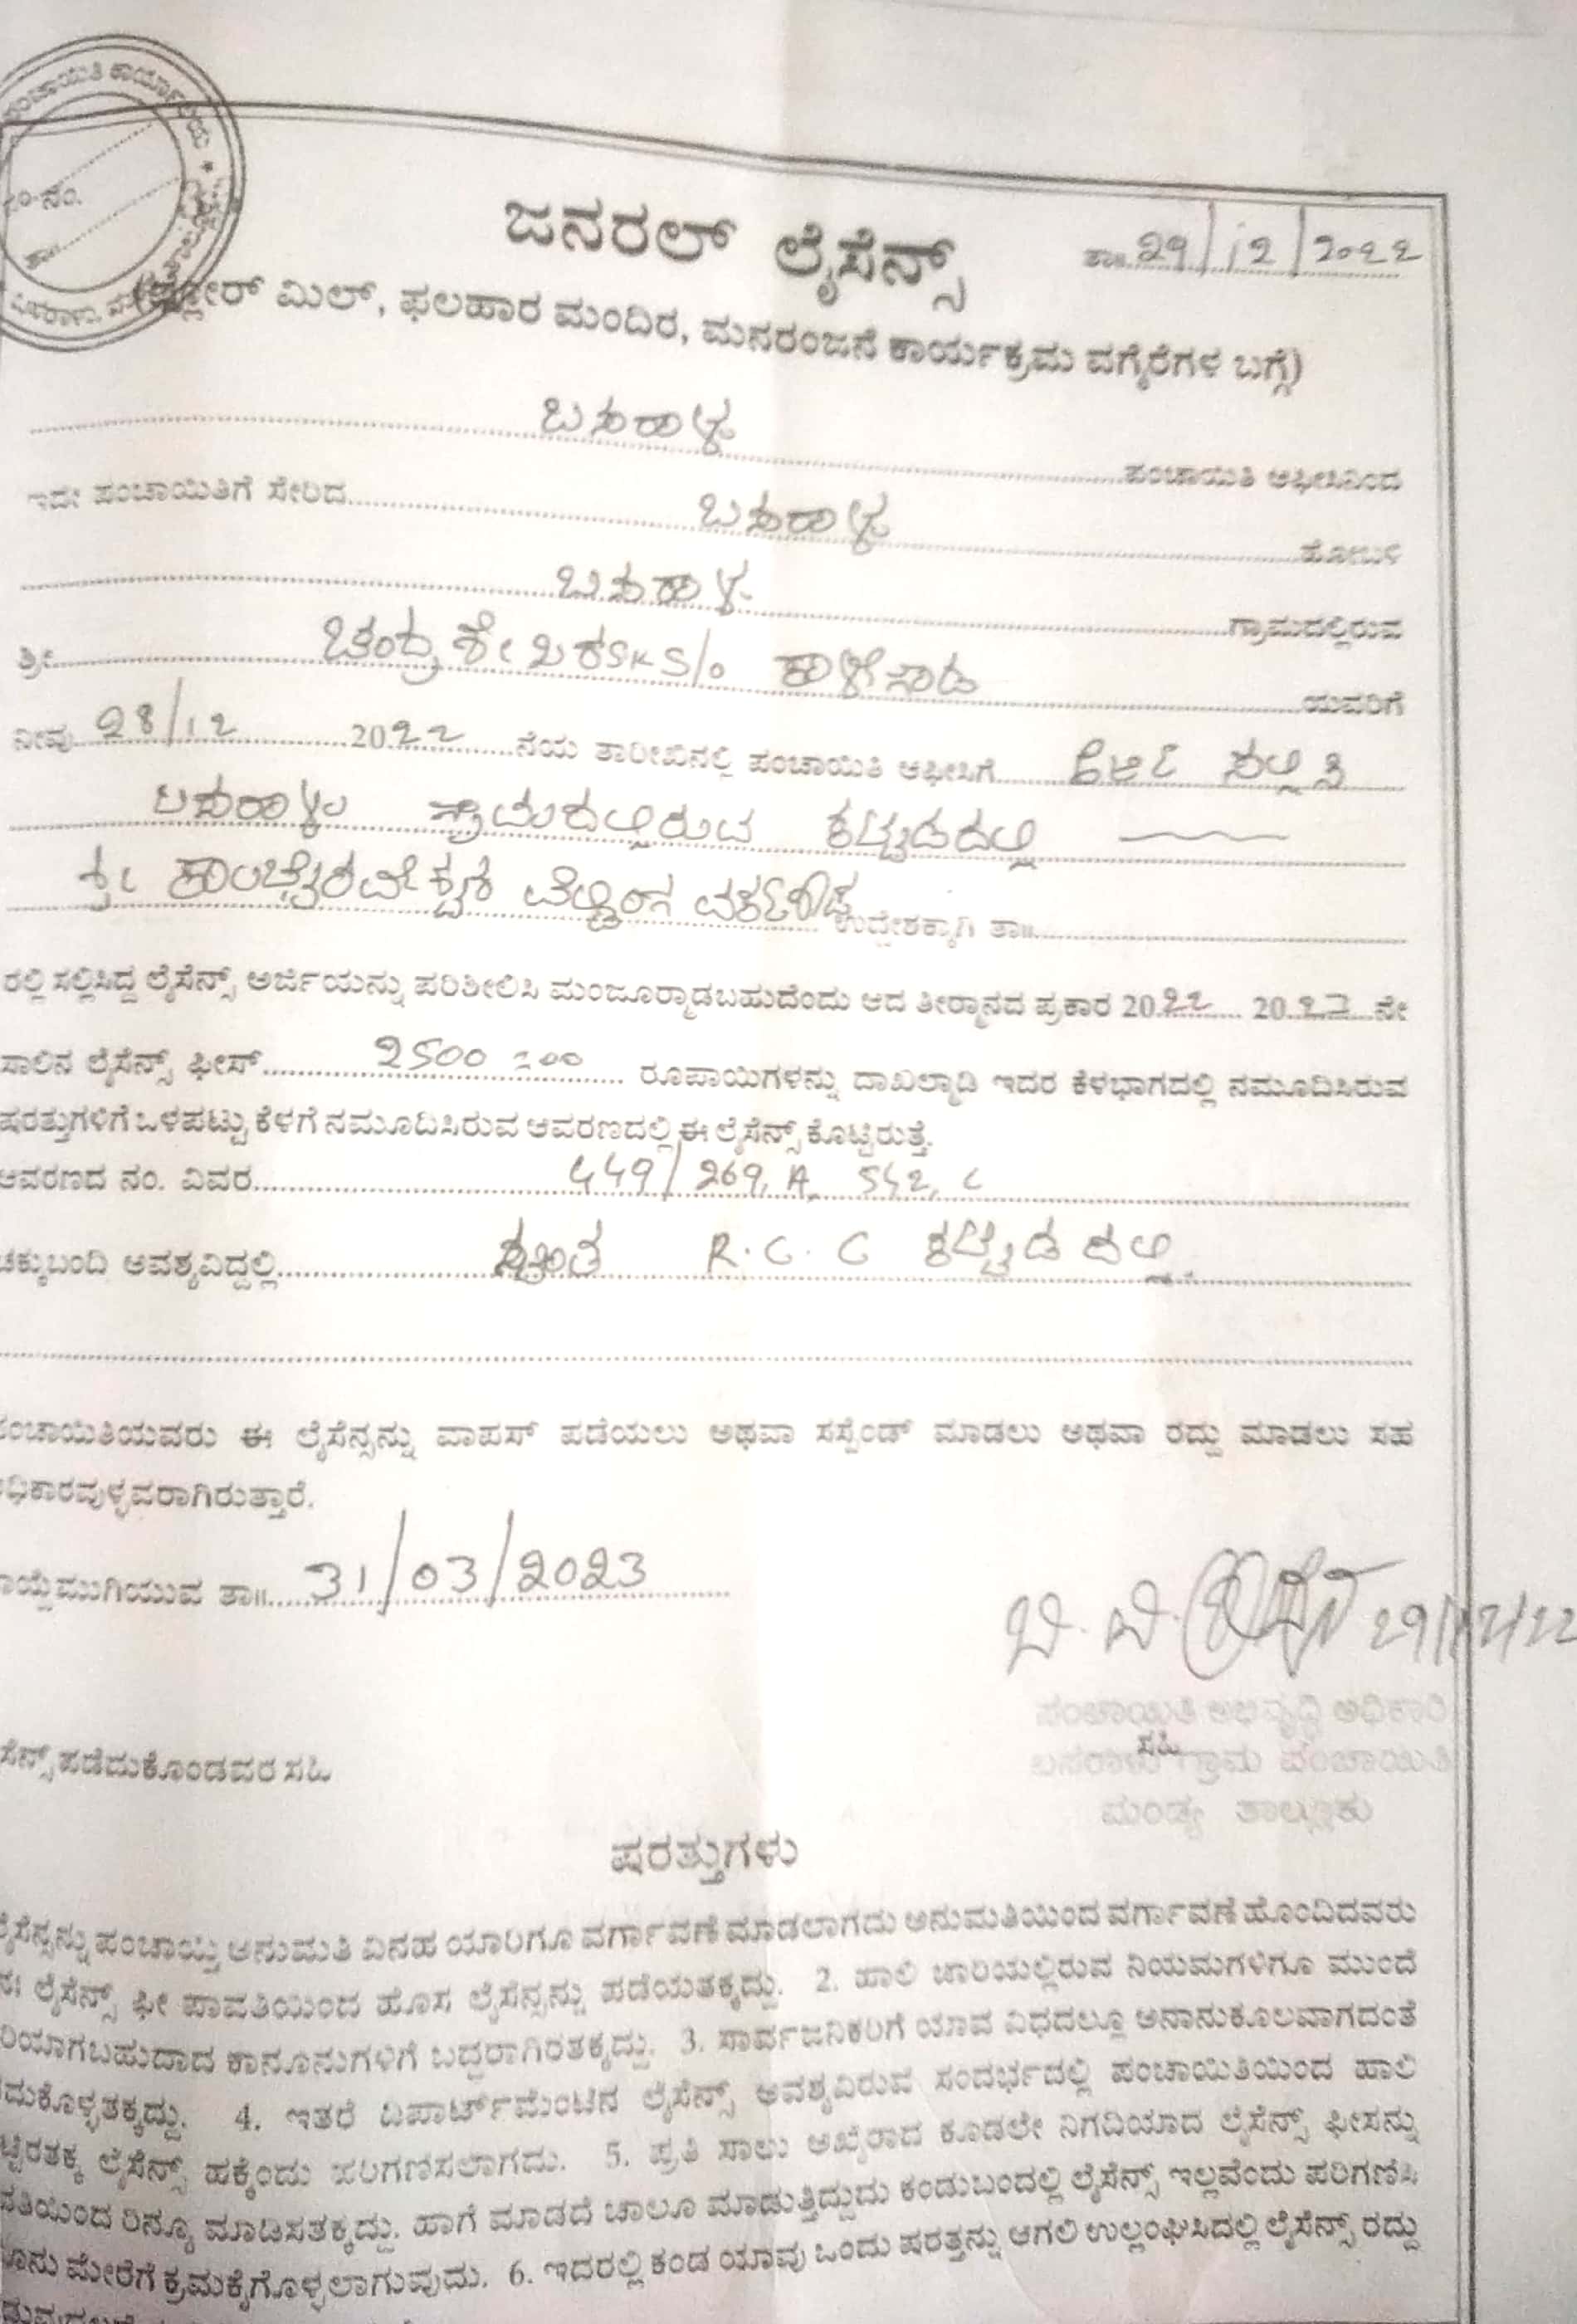 ಪಂಚಾಯಿತಿ ಕಾರ್ಯಾಲಯ
ನಂ.
ತಾ
ಜನರಲ್ ಲೈಸೆನ್ಸ್
ತಾ॥ 29/12/2022
(ಫ್ಲೋರ್ ಮಿಲ್, ಫಲಹಾರ ಮಂದಿರ, ಮನರಂಜನೆ ಕಾರ್ಯಕ್ರಮ ವಗೈರೆಗಳ ಬಗ್ಗೆ)
ಬಸರಾಳು ಪಂಚಾಯಿತಿ ಆಫೀಸಿನಿಂದ
ಇದೇ ಪಂಚಾಯಿತಿಗೆ ಸೇರಿದ ಬಸರಾಳು ಹೋಬಳಿ
ಬಸರಾಳು ಗ್ರಾಮದಲ್ಲಿರುವ
ಶ್ರೀ ಚಂದ್ರಶೇಖರ S K S/o ಯವರಿಗೆ
ನೀವು 28/12 2022 ನೆಯ ತಾರೀಖಿನಲ್ಲಿ ಪಂಚಾಯಿತಿ ಆಫೀಸಿಗೆ ಅರ್ಜಿ ಸಲ್ಲಿಸಿ
ಬಸರಾಳು ಗ್ರಾಮದಲ್ಲಿರುವ ಕಟ್ಟಡದಲ್ಲಿ
ಶ್ರೀ ವೆಲ್ಡಿಂಗ್ ಉದ್ದೇಶಕ್ಕಾಗಿ ತಾ॥
ರಲ್ಲಿ ಸಲ್ಲಿಸಿದ್ದ ಲೈಸೆನ್ಸ್ ಅರ್ಜಿಯನ್ನು ಪರಿಶೀಲಿಸಿ ಮಂಜೂರ್ಮಾಡಬಹುದೆಂದು ಆದ ತೀರ್ಮಾನದ ಪ್ರಕಾರ 2022 2023 ನೇ
ಸಾಲಿನ ಲೈಸೆನ್ಸ್ ಫೀಸ್ 2500=00 ರೂಪಾಯಿಗಳನ್ನು ದಾಖಲ್ಮಾಡಿ ಇದರ ಕೆಳಭಾಗದಲ್ಲಿ ನಮೂದಿಸಿರುವ
ಷರತ್ತುಗಳಿಗೆ ಒಳಪಟ್ಟು ಕೆಳಗೆ ನಮೂದಿಸಿರುವ ಆವರಣದಲ್ಲಿ ಈ ಲೈಸೆನ್ಸ್ ಕೊಟ್ಟಿರುತ್ತೆ.
ಆವರಣದ ನಂ. ವಿವರ 449/269, A, 542, C
ಚಕ್ಕುಬಂದಿ ಅವಶ್ಯವಿದ್ದಲ್ಲಿ ಸ್ವಂತ R.C.C ಕಟ್ಟಡದಲ್ಲಿ
ಪಂಚಾಯಿತಿಯವರು ಈ ಲೈಸೆನ್ಸನ್ನು ವಾಪಸ್ ಪಡೆಯಲು ಅಥವಾ ಸಸ್ಪೆಂಡ್ ಮಾಡಲು ಅಥವಾ ರದ್ದು ಮಾಡಲು ಸಹ
ಅಧಿಕಾರವುಳ್ಳವರಾಗಿರುತ್ತಾರೆ.
ಮುಗಿಯುವ ತಾ॥ 31/03/2023
29/12/22
ಪಂಚಾಯಿತಿ ಅಭಿವೃದ್ಧಿ ಅಧಿಕಾರಿ
ಸಹಿ
ಬಸರಾಳು ಗ್ರಾಮ ಪಂಚಾಯಿತಿ
ಮಂಡ್ಯ ತಾಲ್ಲೂಕು
ಸೆನ್ಸ್ ಪಡೆದುಕೊಂಡವರ ಸಹಿ
ಷರತ್ತುಗಳು
ಲೈಸೆನ್ಸನ್ನು ಪಂಚಾಯ್ತಿ ಅನುಮತಿ ವಿನಹ ಯಾರಿಗೂ ವರ್ಗಾವಣೆ ಮಾಡಲಾಗದು ಅನುಮತಿಯಿಂದ ವರ್ಗಾವಣೆ ಹೊಂದಿದವರು
ಲೈಸೆನ್ಸ್ ಫೀ ಪಾವತಿಯಿಂದ ಹೊಸ ಲೈಸೆನ್ಸನ್ನು ಪಡೆಯತಕ್ಕದ್ದು. 2. ಹಾಲಿ ಜಾರಿಯಲ್ಲಿರುವ ನಿಯಮಗಳಿಗೂ ಮುಂದೆ
ರಿಯಾಗಬಹುದಾದ ಕಾನೂನುಗಳಿಗೆ ಬದ್ಧರಾಗಿರತಕ್ಕದ್ದು. 3. ಸಾರ್ವಜನಿಕರಿಗೆ ಯಾವ ವಿಧದಲ್ಲೂ ಅನಾನುಕೂಲವಾಗದಂತೆ
ದುಕೊಳ್ಳತಕ್ಕದ್ದು. 4. ಇತರೆ ಡಿಪಾರ್ಟ್‌ಮೆಂಟಿನ ಲೈಸೆನ್ಸ್ ಅವಶ್ಯವಿರುವ ಸಂದರ್ಭದಲ್ಲಿ ಪಂಚಾಯಿತಿಯಿಂದ ಹಾಲಿ
ಟ್ಟಿರತಕ್ಕ ಲೈಸೆನ್ಸ್ ಹಕ್ಕೆಂದು ಪರಿಗಣಿಸಲಾಗದು. 5. ಪ್ರತಿ ಸಾಲು ಅಖೈರಾದ ಕೂಡಲೇ ನಿಗದಿಯಾದ ಲೈಸೆನ್ಸ್ ಫೀಸನ್ನು
ವತಿಯಿಂದ ರಿನ್ಯೂ ಮಾಡಿಸತಕ್ಕದ್ದು. ಹಾಗೆ ಮಾಡದೆ ಚಾಲೂ ಮಾಡುತ್ತಿದ್ದುದು ಕಂಡುಬಂದಲ್ಲಿ ಲೈಸೆನ್ಸ್ ಇಲ್ಲವೆಂದು ಪರಿಗಣಿಸಿ
ನೂನು ಮೇರೆಗೆ ಕ್ರಮಕೈಗೊಳ್ಳಲಾಗುವುದು. 6. ಇದರಲ್ಲಿ ಕಂಡ ಯಾವು ಒಂದು ಷರತ್ತನ್ನು ಆಗಲಿ ಉಲ್ಲಂಘಿಸಿದಲ್ಲಿ ಲೈಸೆನ್ಸ್ ರದ್ದು